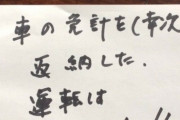 車の免許を(幸次
返納した.
運転は